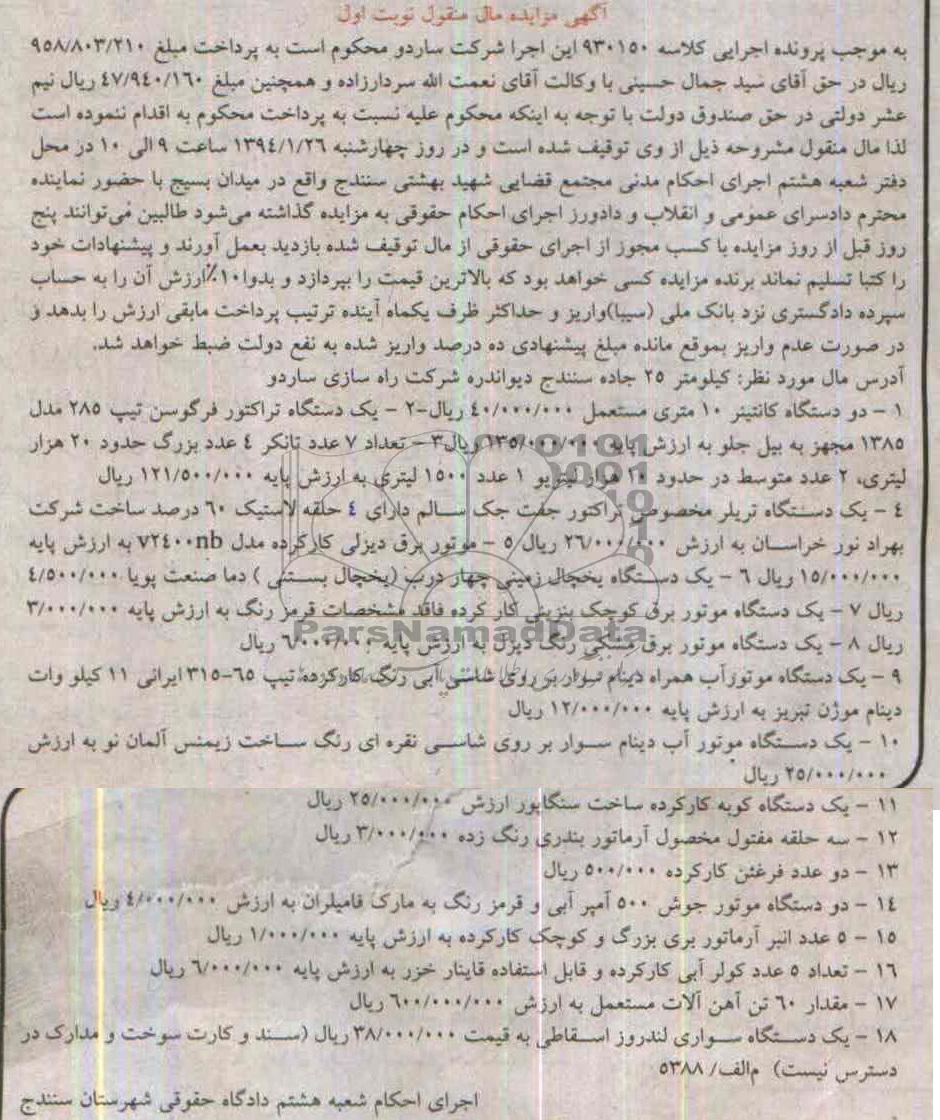 آگهی مزایده مال منقول نوبت اول
به موجب پرونده اجرایی کلاسه ۹۳۰۱۵۰ این اجرا شرکت ساردو محکوم است به پرداخت مبلغ ۹۵۸/۸۰۳/۲۱۰
ریال در حق آقای سید جمال حسینی با وکالت آقای نعمت الله سردارزاده و همچنین مبلغ ۴۷/۹۴۰/۱۶۰ ریال نیم
عشر دولتی در حق صندوق دولت با توجه به اینکه محکوم علیه نسبت به پرداخت محکوم به اقدام ننموده است
لذا مال منقول مشروحه ذیل از وی توقیف شده است و در روز چهارشنبه ۱۳۹٤/۱/۲٦ ساعت ۹ الی ۱۰ در محل
دفتر شعبه هشتم اجرای احکام مدنی مجتمع قضایی شهید بهشتی سنندج واقع در میدان بسیج با حضور نماینده
محترم دادسرای عمومی و انقلاب و دادورز اجرای احکام حقوقی به مزایده گذاشته می‌شود طالبین می‌توانند پنج
روز قبل از روز مزایده با کسب مجوز از اجرای حقوقی از مال توقیف شده بازدید بعمل آورند و پیشنهادات خود
را کتبا تسلیم نماند برنده مزایده کسی خواهد بود که بالاترین قیمت را بپردازد و بدوا ۱۰٪ارزش آن را به حساب
سپرده دادگستری نزد بانک ملی (سیبا)واریز و حداکثر ظرف یکماه آینده ترتیب پرداخت مابقی ارزش را بدهد و
در صورت عدم واریز بموقع مانده مبلغ پیشنهادی ده درصد واریز شده به نفع دولت ضبط خواهد شد.
آدرس مال مورد نظر: کیلومتر ۲۵ جاده سنندج دیواندره شرکت راه سازی ساردو
۱ – دو دستگاه کانتینر ۱۰ متری مستعمل ٤۰/۰۰۰/۰۰۰ ریال-۲ – یک دستگاه تراکتور فرگوسن تیپ ۲۸۵ مدل
۱۳۸۵ مجهز به بیل جلو به ارزش پایه ۱۳۵/۰۰۰/۰۰۰ ریال۳ – تعداد ۷ عدد تانکر ٤ عدد بزرگ حدود ۲۰ هزار
لیتری، ۲ عدد متوسط در حدود ۱۰ هزار لیتر یو ۱ عدد ۱۵۰۰ لیتری به ارزش پایه ۱۲۱/۵۰۰/۰۰۰ ریال
٤ – یک دستگاه تریلر مخصوص تراکتور جفت جک سالم دارای ٤ حلقه لاستیک ٦۰ درصد ساخت شرکت
بهراد نور خراسان به ارزش ۲٦/۰۰۰/۰۰۰ ریال ۵ – موتور برق دیزلی کارکرده مدل v۲٤۰۰nb به ارزش پایه
۱۵/۰۰۰/۰۰۰ ریال ٦ – یک دستگاه یخچال زمینی چهار درب (یخچال بستنی ) دما صنعت پویا ٤/۵۰۰/۰۰۰
ریال ۷ – یک دستگاه موتور برق کوچک بنزینی کار کرده فاقد مشخصات قرمز رنگ به ارزش پایه ۳/۰۰۰/۰۰۰
ریال ۸ – یک دستگاه موتور برق مشکی رنگ دیزل به ارزش پایه ٦/۰۰۰/۰۰۰ ریال
ParsNamadData
۹ – یک دستگاه موتورآب همراه دینام سوار بر روی شاسی آبی رنگ کارکرده تیپ ٦۵-۳۱۵ ایرانی ۱۱ کیلو وات
دینام موژن تبریز به ارزش پایه ۱۲/۰۰۰/۰۰۰ ریال
۱۰ – یک دستگاه موتور آب دینام سوار بر روی شاسی نقره ای رنگ ساخت زیمنس آلمان نو به ارزش
۲۵/۰۰۰/۰۰۰ ریال
۱۱ – یک دستگاه کوبه کارکرده ساخت سنگاپور ارزش ۲۵/۰۰۰/۰۰۰ ریال
۱۲ – سه حلقه مفتول مخصول آرماتور بندری رنگ زده ۳/۰۰۰/۰۰۰ ریال
۱۳ – دو عدد فرغئن کارکرده ۵۰۰/۰۰۰ ریال
۱٤ – دو دستگاه موتور جوش ۵۰۰ آمپر آبی و قرمز رنگ به مارک فامیلران به ارزش ٤/۰۰۰/۰۰۰ ریال
۱۵ – ۵ عدد انبر آرماتور بری بزرگ و کوچک کارکرده به ارزش پایه ۱/۰۰۰/۰۰۰ ریال
۱٦ – تعداد ۵ عدد کولر آبی کارکرده و قابل استفاده قاینار خزر به ارزش پایه ٦/۰۰۰/۰۰۰ ریال
۱۷ – مقدار ٦۰ تن آهن آلات مستعمل به ارزش ٦۰۰/۰۰۰/۰۰۰ ریال
۱۸ – یک دستگاه سواری لندروز اسقاطی به قیمت ۳۸/۰۰۰/۰۰۰ ریال (سند و کارت سوخت و مدارک در
دسترس نیست) م‌الف/ ۵۳۸۸
اجرای احکام شعبه هشتم دادگاه حقوقی شهرستان سنندج